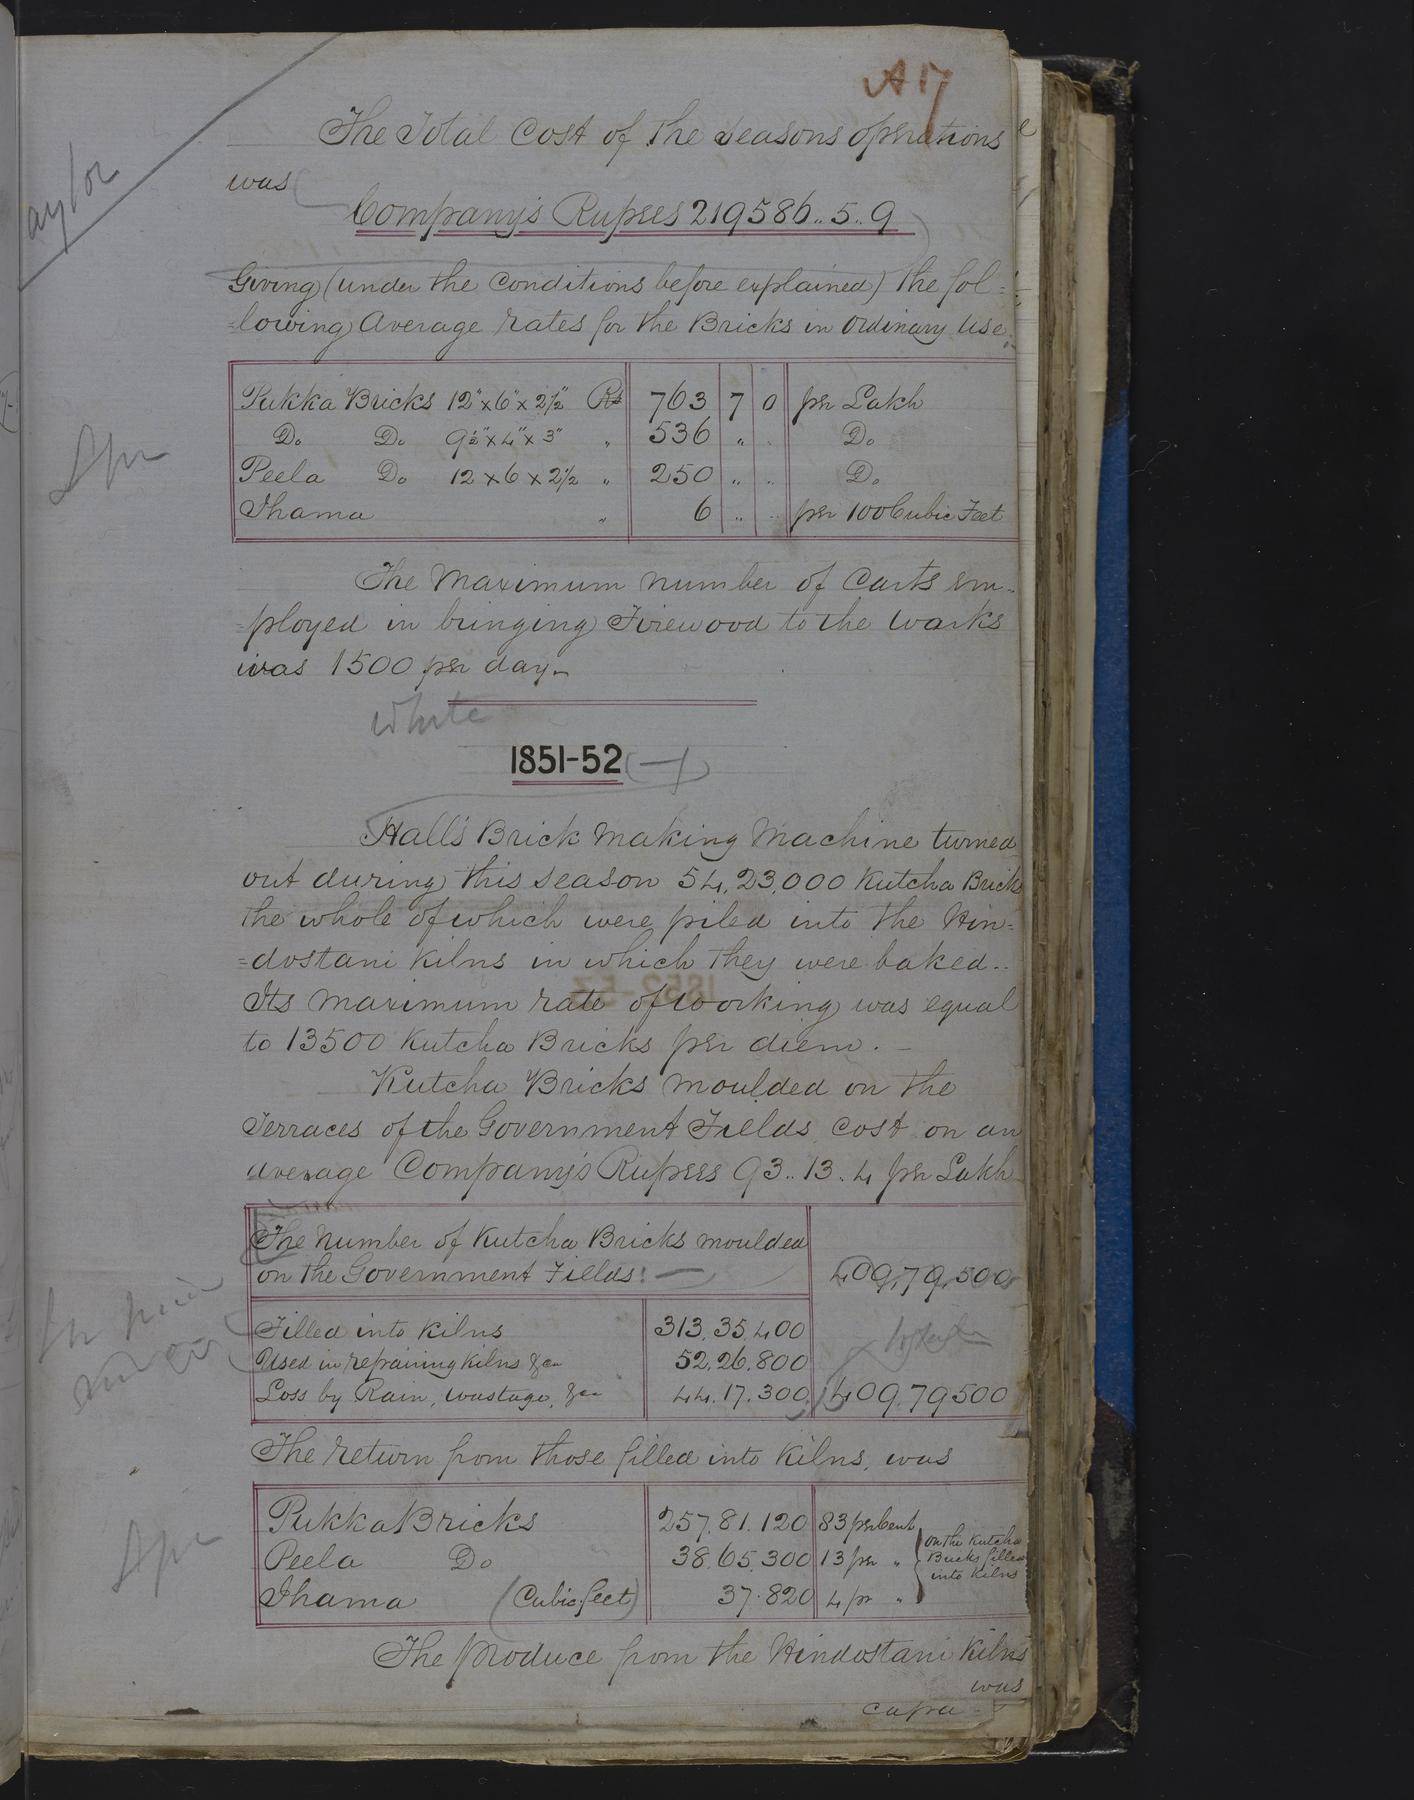 A 17
The Total Cost of the Seasons operations
was
Company's Rupees 219586..5..9
Giving (under the conditions before explained) the fol=
=lowing Average rates for the Bricks in ordinary use:
Pukka Bricks 12"x6"x2½" Rs 763 7 0 per Lakh
Do Do 9½"x4"x3" " 536 " " Do
Peela Do 12x6x2½ " 250 " " Do
Jhama " 6 " " per 100 Cubic Feet
The Maximum number of Carts em=
=ployed in bringing Firewood to the works
was 1500 per day
White
1851-52
Hall's Brick Making Machine turned
out during this season 54,23,000 Kutcha Bricks
the whole of which were piled into the Hin=
=dostani Kilns in which they were baked..
Its maximum rate of working was equal
to 13500 Kutcha Bricks per diem.
Kutcha Bricks moulded on the
Terraces of the Government Fields cost on an
average Company's Rupees 93..13..4 per Lakh
The Number of Kutcha Bricks moulded
on the Government Fields: 409,79,500
Filled into Kilns 313,35,400
Used in repairing Kilns &ca 52,26,800
Loss by Rain, wastage, &ca 44.17.300 409,79500
The return from those filled into Kilns, was
Pukka Bricks 257.81.120 83 per Cent
Peela Do 38.65.300 13 per "
Jhama (Cubic feet) 37.820 4 pr "
on the Kutcha
Bricks filled
into Kilns
The produce from the Hindostani Kilns
was
capa=
aylor